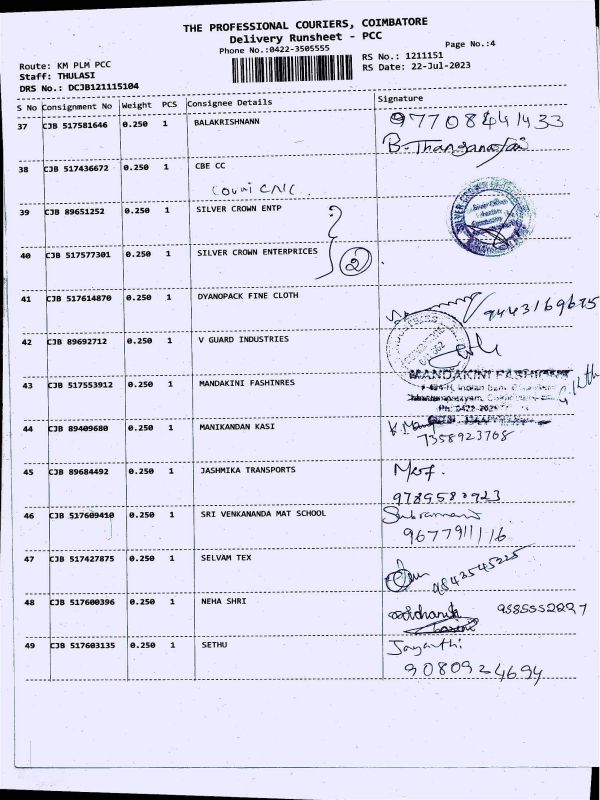 THE PROFESSIONAL COURIERS, COIMBATORE
Delivery Runsheet - PCC
Phone No.:0422-3505555
Page No.:4
Route: KM PLM PCC
RS No.: 1211151
Staff: THULASI
RS Date: 22-Jul-2023
DRS No.: DCJB121115104
S No Consignment No Weight PCS Consignee Details Signature
37 CJB 517581646 0.250 1 BALAKRISHNANN 9770841433
B-Thangaraj
38 CJB 517436672 0.250 1 CBE CC
39 CJB 89651252 0.250 1 SILVER CROWN ENTP
40 CJB 517577301 0.250 1 SILVER CROWN ENTERPRICES 2
41 CJB 517614870 0.250 1 DYANOPACK FINE CLOTH
42 CJB 89692712 0.250 1 V GUARD INDUSTRIES
43 CJB 517553912 0.250 1 MANDAKINI FASHINRES MANDAKINI
44 CJB 89409680 0.250 1 MANIKANDAN KASI
7358923768
45 CJB 89684492 0.250 1 JASHMIKA TRANSPORTS
46 CJB 517609410 0.250 1 SRI VENKANANDA MAT SCHOOL Subramani
9677911116
47 CJB 517427875 0.250 1 SELVAM TEX 9843545225
48 CJB 517600396 0.250 1 NEHA SHRI
49 CJB 517603135 0.250 1 SETHU Jayanthi
9080924694